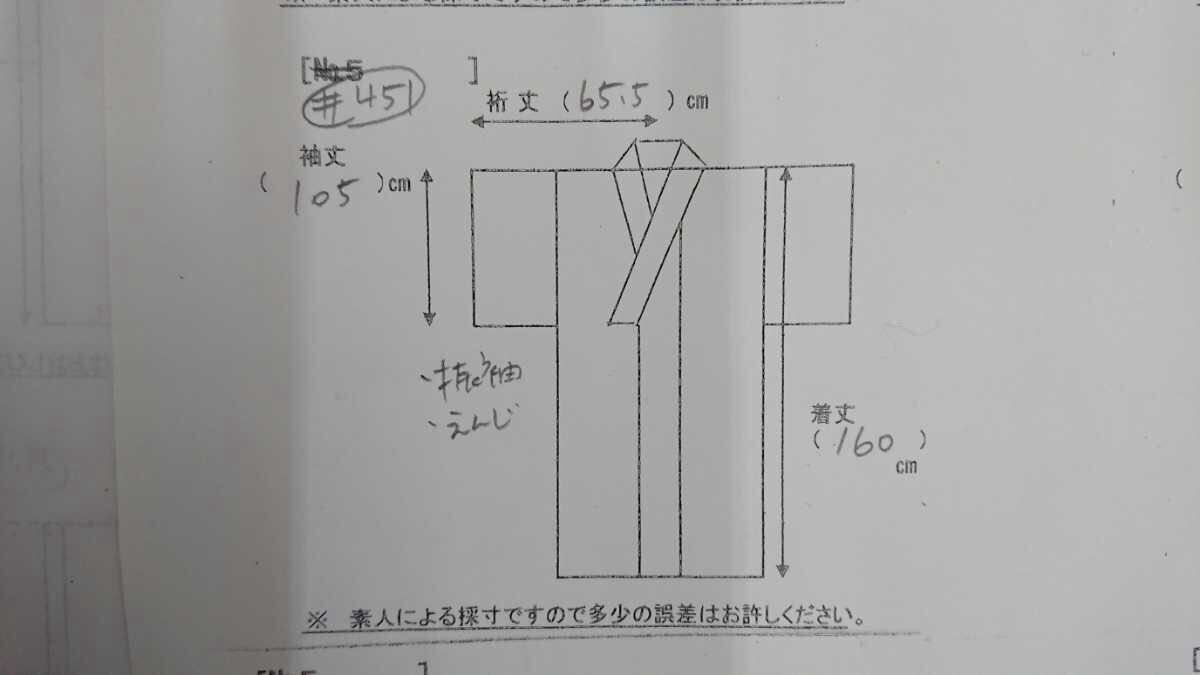 [No.5 ]
#451
裄丈 (65.5) cm
袖丈
(105)cm
・振袖
・えんじ
着丈
(160)
cm
※ 素人による採寸ですので多少の誤差はお許しください。
[No.5 ]